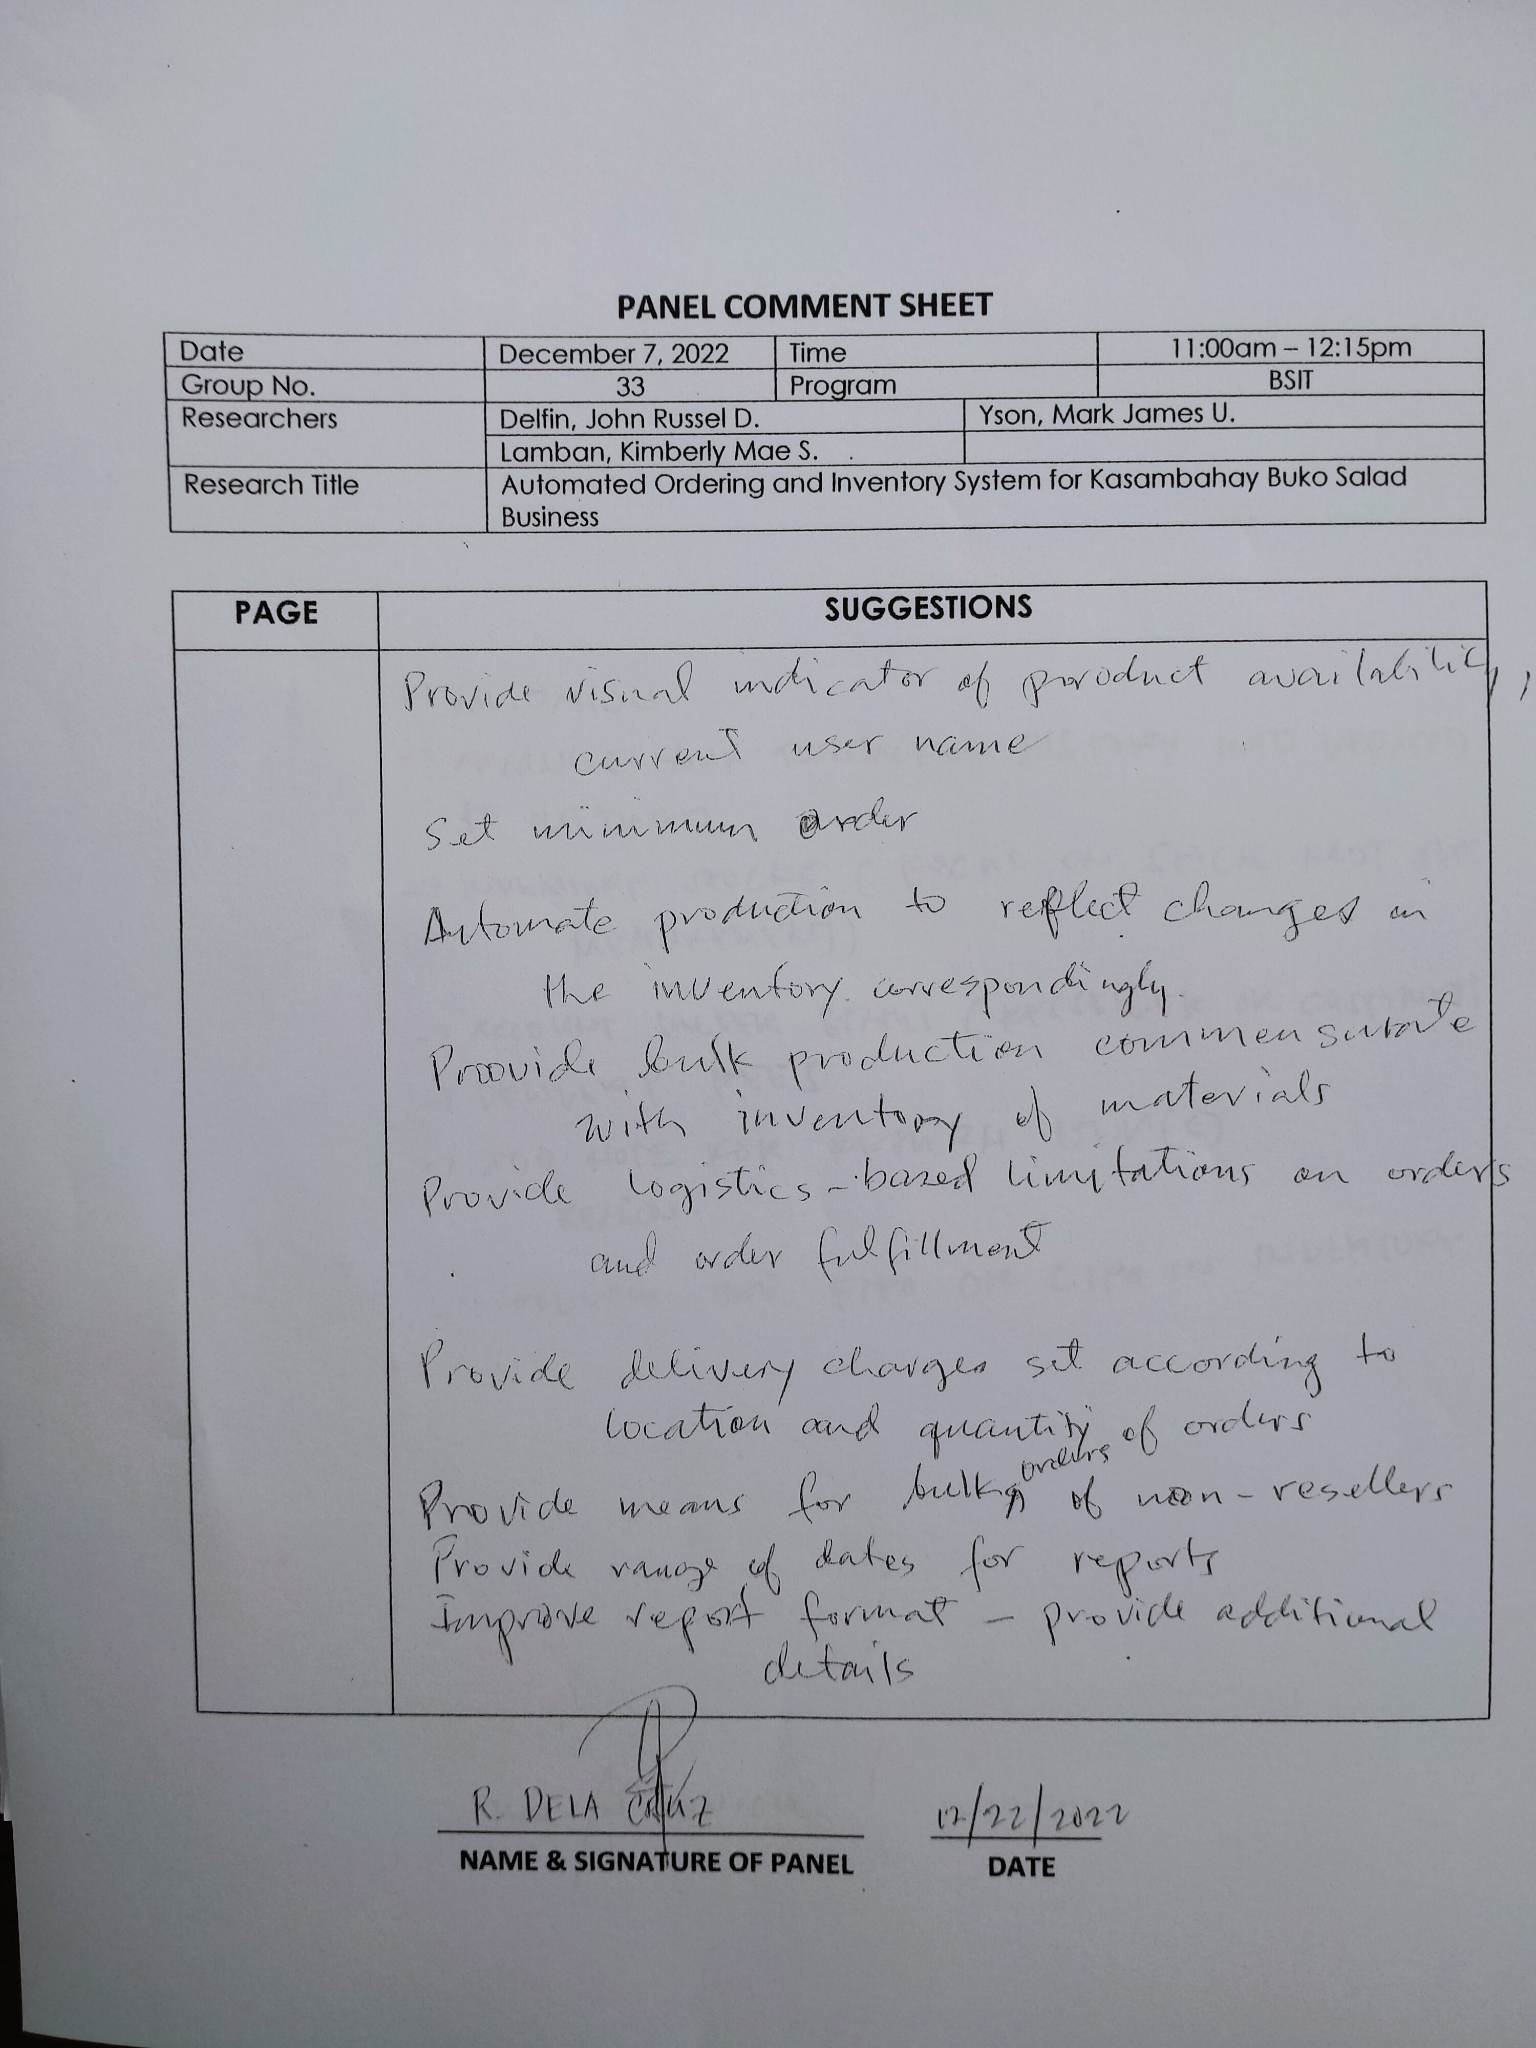 PANEL COMMENT SHEET
Date December 7, 2022 Time 11:00am – 12:15pm
Group No. 33 Program BSIT
Researchers Delfin, John Russel D. Yson, Mark James U.
Lamban, Kimberly Mae S.
Research Title Automated Ordering and Inventory System for Kasambahay Buko Salad
Business
PAGE SUGGESTIONS
Provide visual indicator of product availability,
current user name
Set minimum order
Automate production to reflect changes in
the inventory correspondingly.
Provide bulk production commensurate
with inventory of materials
Provide logistics-based limitations on orders
and order fulfillment
Provide delivery charges set according to
location and quantity of orders
Provide means for bulk orders of non-resellers
Provide range of dates for reports
Improve report format – provide additional
details
R. DELA CRUZ 12/22/2022
NAME & SIGNATURE OF PANEL DATE